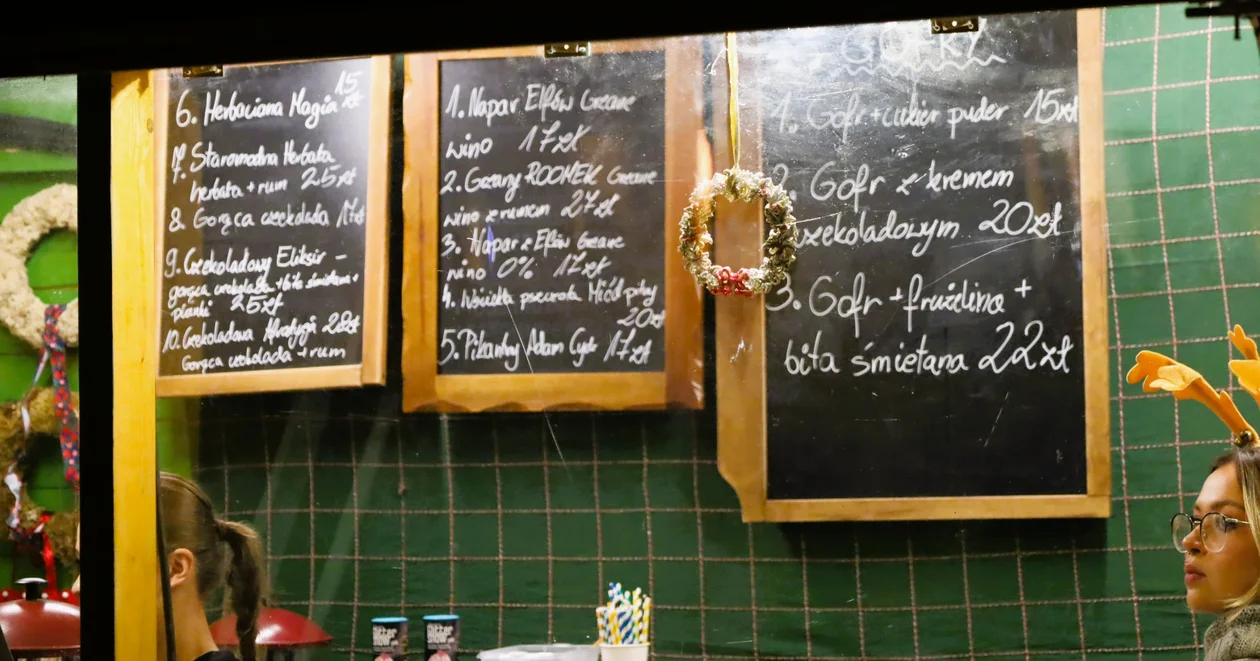 6. Herbaciana Magia 15 zł
7. Staromodna Herbata
herbata + rum 25zł
8. Gorąca czekolada 17zł
9. Czekoladowy Eliksir -
gorąca czekolada + bita śmietana +
pianki 25zł
10. Czekoladowa 28zł
Gorąca czekolada + rum
1. Napar Elfów Grzane
wino 17zł
2. Grzany ROOMEK Grzane
wino z rumem 27zł
3. Napar z Elfów Grzane
wino 0% 17zł
4. Wściekła pszczoła Miód pitny
20zł
5. Pikantny Adam Cydr 17zł
GOFRY
1. Gofr + cukier puder 15zł
2. Gofr z kremem
czekoladowym 20zł
3. Gofr + frużelina +
bita śmietana 22zł